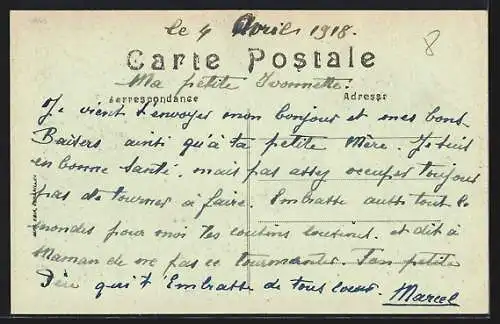 le 4 Avrils 1918.
8
Carte Postale
Ma petite Yvonnette.
Correspondance
Adresse
Je vient t'envoyer mon bonjour et mes bons
Baisers ainsi qu'à ta petite Mère. Je suis
en bonne santé, mais pas assez occuper toujours
pas de tournes à faire. Embrasse aussi tout le
mondes pour moi tes cousins cousines et dit à
Maman de ne pas se tourmenter. Ton petite
Père qui t'Embrasse de tous coeur Marcel